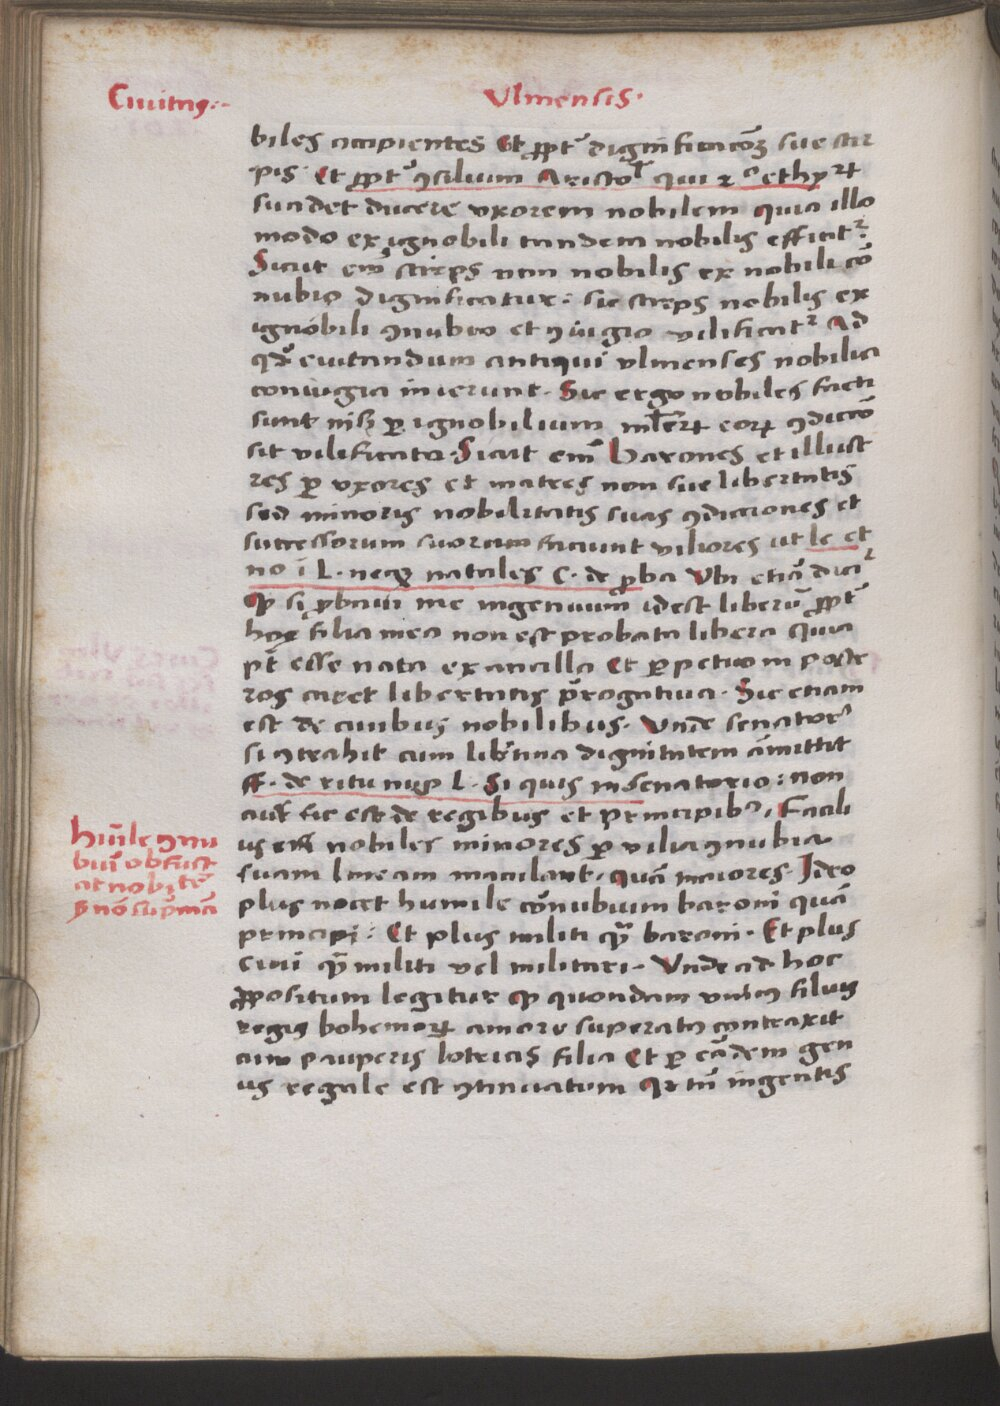 Ciuitas
Vlmensis
biles accipientes Et ꝓpt dignificacōꝫ sue stir
pis Et ꝓpt ꝯsilium Aristol qui 2° ethyꝝ
suadet ducere vxorem nobilem quia illo
modo ex ignobili tandem nobilis efficit
Sicut em stirps non nobilis ex nobili cō
nubio dignificatur: sic stirps nobilis ex
ignobili ꝯnubio et ꝯiugio vilificat Ad
qd euitandum antiqui vlmenses nobilia
coniugia inierunt. Sic ergo nobiles facti
sunt nisi ꝑ ignobilium mlerꝝ eorꝝ ꝯdiccō
sit vilificata. Sicut em Barones et illust
res ꝑ vxores et matres non sue libertatis
sed minoris nobilitatis suas ꝯdicciones et
successorum suorum faciunt viliores ut le et
no i L. neqꝫ natales C. de ꝓba Vbi etiā dicit
ꝙ si ꝓbaui me ingenuum idest liberū ꝓpt
hoc filia mea non est probata libera Quia
pt esse nata ex ancilla Et ꝑpetuo in poste
ros caret libertatis prerogatiua. Sic etiam
est de ciuibus nobilibus. Vnde senator
si ꝯtrahit cum libtina dignitatem āmittit
ff. de ritu nup L. Si quis in senatorio: non
aut sic est de regibus et principibꝰ, Facili
us em nobiles minores ꝑ vilia ꝯnubia
suam lineam maculant. quā maiores. Ideo
plus nocet humile cōnubium baroni quā
principi: Et plus militi quā baroni. Et plus
ciui quā militi vel militari. Vnde ad hoc
ꝓpositum legitur ꝙ quondam vnicꝰ filius
regis bohemorꝝ amore superatꝰ contraxit
cum pauperis lotricis filia Et ꝑ eādem gen
us regale est ꝯtinuatum Qr tn ingentis
Hūile ꝯnu
biū obfusc
at nobitē
ꝫ nō supmā